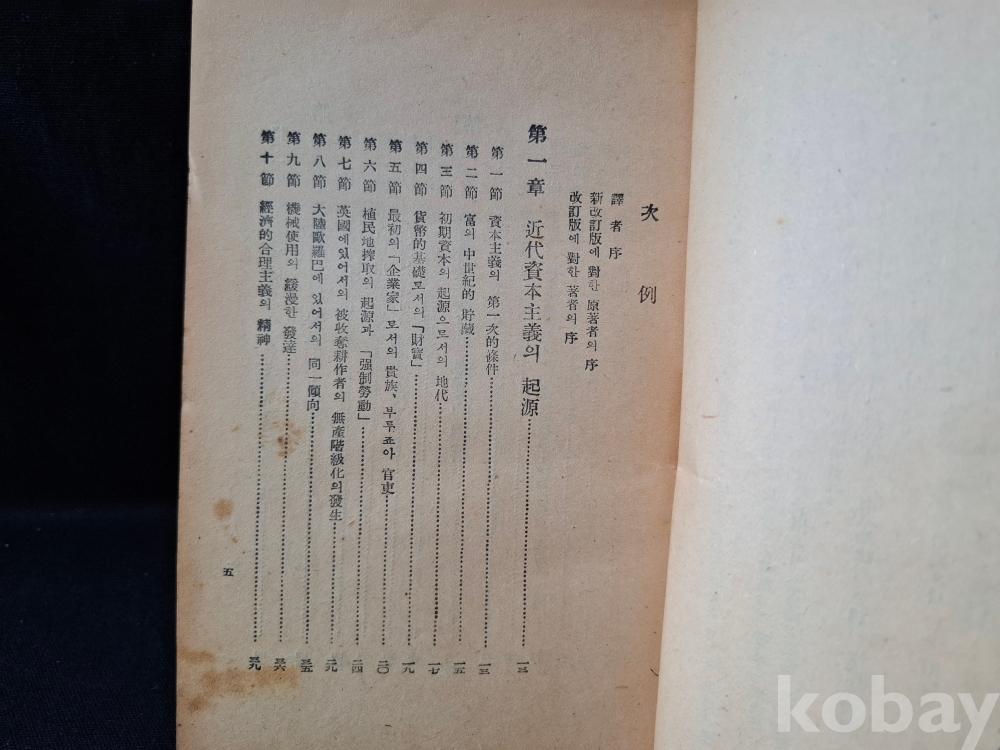 次例
譯者序
新改訂版에 對한 原著者의 序
改訂版에 對한 著者의 序
第一章 近代資本主義의 起源 一三
第一節 資本主義의 第一次的條件 一三
第二節 富의 中世紀的 貯藏 一五
第三節 初期資本의 起源으로서의 地代 一七
第四節 貨幣的基礎로서의「財寶」 一九
第五節 最初의「企業家」로서의 貴族、부루죠아 官吏 二〇
第六節 植民地搾取의 起源과 「强制勞動」 二四
第七節 英國에있어서의 被收奪耕作者의 無產階級化의發生 二九
第八節 大陸歐羅巴에있어서의 同一傾向 三五
第九節 機械使用의 緩漫한 發達 三六
第十節 經濟的合理主義의 精神 三九
五
kobay